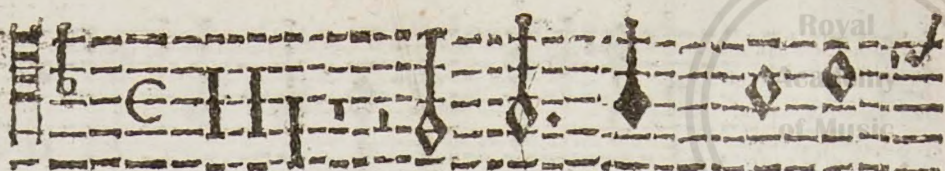 Royal
Academy
of Music